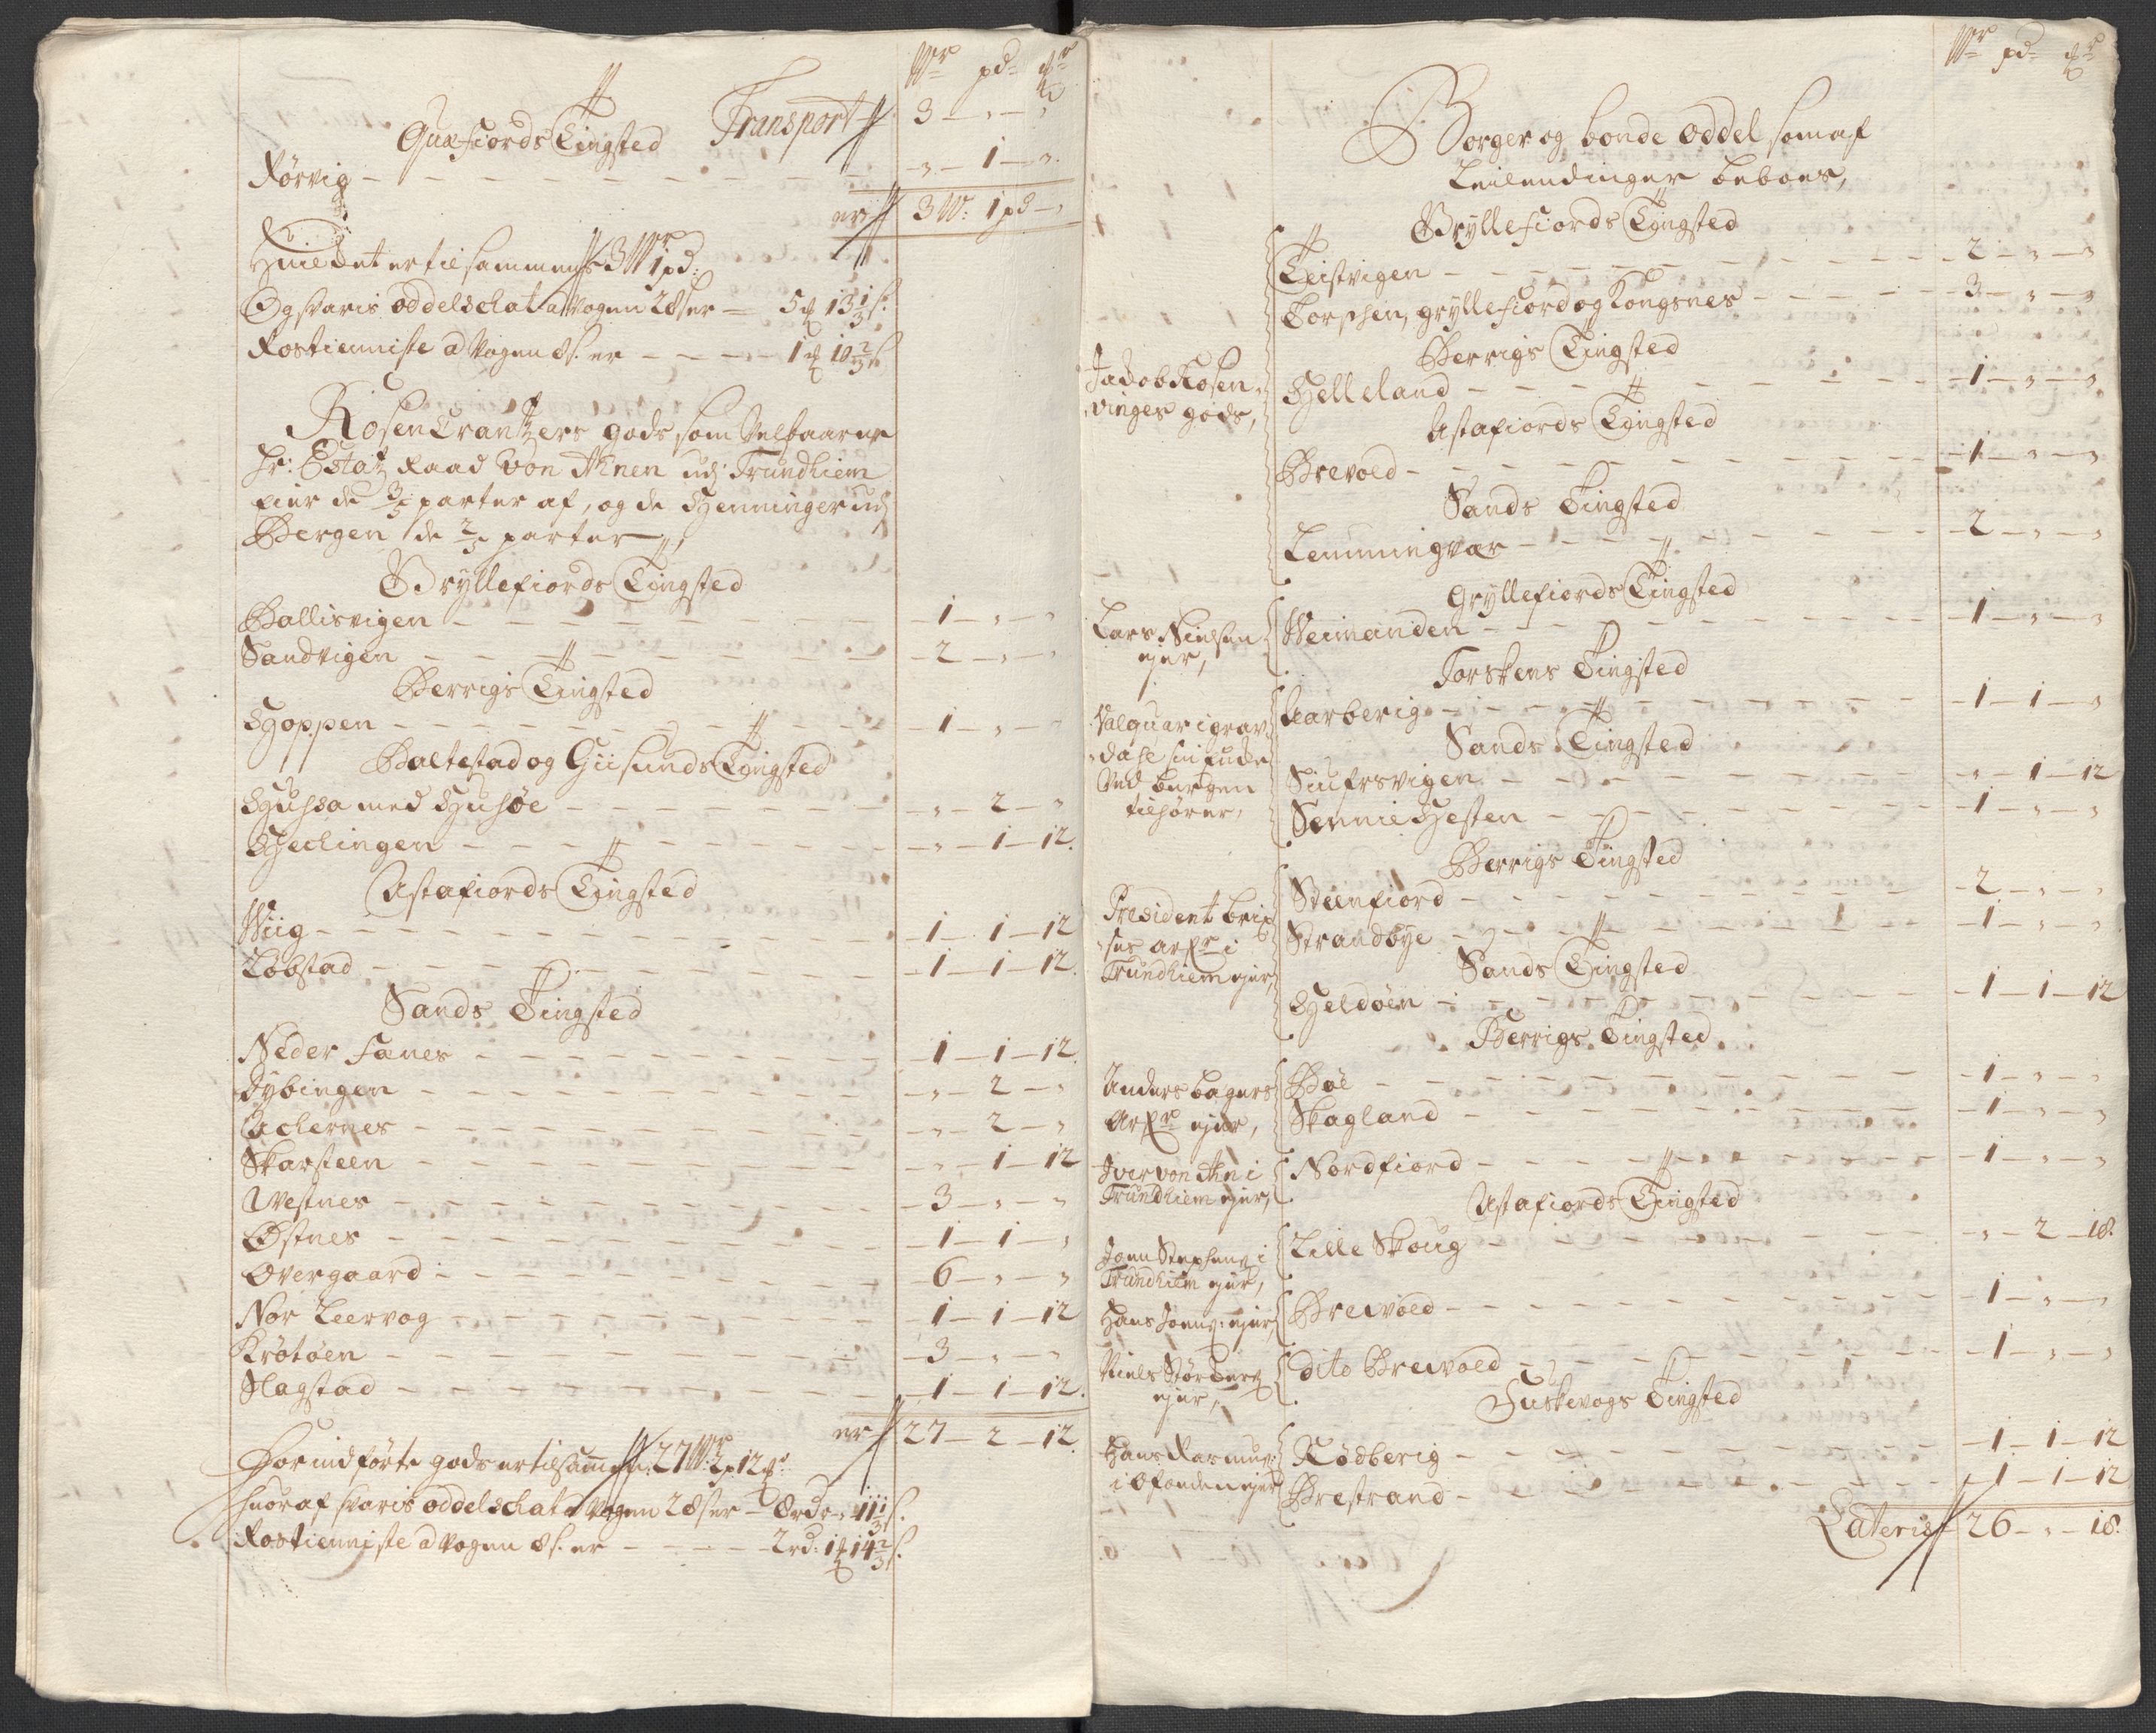 Wr pd
Transport 3 - „ - „
Quæfiords Tingsted
Rørvig - „ - 1 - „
er 3 W: 1 pd - „
Huilket er tilsammens 3 Wr 1 pd:
Og svaris oddelschat a Vogen 28 s er - 5 13 1/3 s:
Rostienniste a Vogen 8 s. er - 1 10 2/3 s
RosenCrantzers gods som Velbaarne
Hr: Estatz Raad Von Ahnen udj Trundhiem
eier de 3/5 parter af, og de Henninger udj
Bergen de 2/5 parter,
Gryllefiords Tingsted
Ballisvigen - 1 - „ - „
Sandvigen - 2 - „ - „
Berrigs Tingsted
Hoppen - 1 - „ - „
Baltestad og Giisunds Tingsted
Hussa med Husøe - „ - 2 - „
Kechingen - „ - 1 - 12.
Astafiords Tingsted
Wiig - 1 - 1 - 12
Løbstad - 1 - 1 - 12.
Sands Tingsted
Neder Fanes - 1 - 1 - 12.
Dybingen - „ - 2 - „
Achernes - „ - 2 - „
Skarsteen - „ - 1 - 12
Westnes - 3 - „ - „
Østnes - 1 - 1 - „
Overgaard - 6 - „ - „
Nor Leervog - 1 - 1 - 12
Krøtøen - 3 - „ - „
Slagstad - 1 - 1 - 12.
er 27 - 2 - 12.
Forindførte gods er tilsammen: 27 W: 2 p 12
huoraf svaris oddelschat a Vogen 28 s er - 8 rdr - „ 11 1/3 s.
Rostienniste a Vogen 8 s. er - 2 rd: 1 14 2/3 s.
Wr pd
Borger og bonde oddel som af
Leilendinger beboes,
Gryllefiords Tingsted
Jacob Rosen
vinges gods,
Teistvigen - 2 - „ - „
Torschen, gryllefiord og Kongsnes - 3 - „ - „
Berrigs Tingsted
Helleland - 1 - „ - „
Astafiords Tingsted
Brevold - 1 - „ - „
Sands Tingsted
Lemmingvær - 2 - „ - „
Gryllefiords Tingsted
Lars Nielsen
ejer,
Weimanden - 1 - „ - „
Torskens Tingsted
Valguar i grav
dahl
Ved bergen
tilhører,
Aarberig - 1 - 1 - „
Sands Tingsted
Siufrsvigen - „ - 1 - 12
Sennie Hesten - 1 - „ - „
Berrigs Tingsted
President brix
ses arfr i
Trundhiem ejer,
Steenfiord - 2 - „ - „
Strandbye - 1 - „ - „
Sands Tingsted
Heldøen - 1 - 1 - 12
Berrigs Tingsted
Anders bagers
Arfr ejer,
Bøe - 1 - „ - „
Skagland - 1 - „ - „
Iver von Ahn i
Trundhiem ejer,
Nordfiord - 1 - „ - „
Astafiords Tingsted
Joen Stephens: i
Trundhiem ejer,
Lille Skoug - „ - 2 - 18.
Hans Joens: ejer,
Breivold - 1 - „ - „
Niels Størberg
ejer,
dito Breivold - 1 - „ - „
Suskevogs Tingsted
Hans Rasmus:
i Ofoeden ejer
Rødberig - 1 - 1 - 12
Brestrand - 1 - 1 - 12
Lateris 26 - „ - 18.